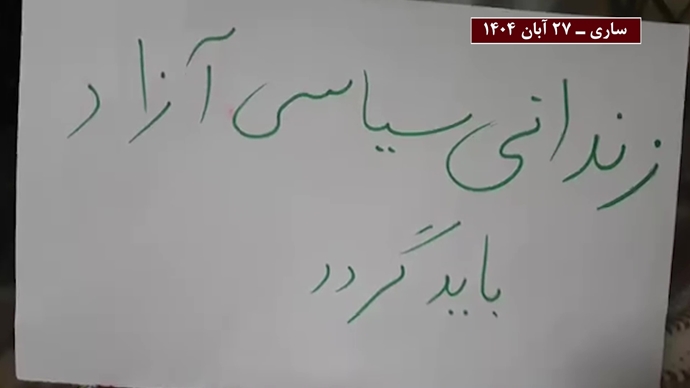 ساری ـ ۲۷ آبان ۱۴۰۴
زندانی سیاسی آزاد
باید گردد